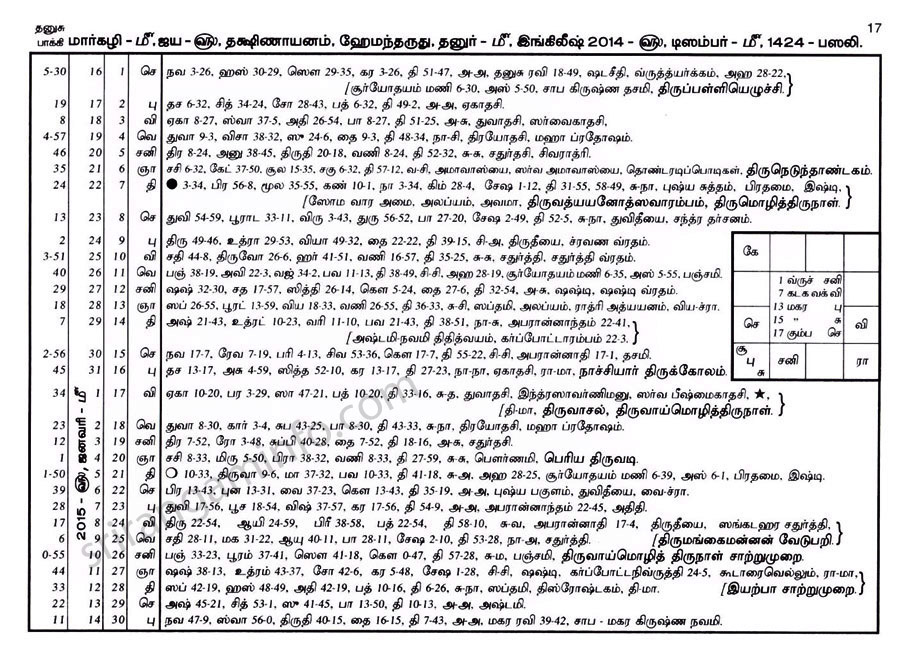 தனுசு
பாக்கி மார்கழி - மீ, ஜய - வு, தக்ஷிணாயனம், ஹேமந்தருது, தனுர் - மீ, இங்கிலீஷ் 2014 - வு, டிஸம்பர் - மீ, 1424 - பஸலி.
17
5-30 16 1 செ நவ 3-26, ஹஸ் 30-29, ஸௌ 29-35, கர 3-26, தி 51-47, அ-அ, தனுசு ரவி 18-49, ஷடசீதி, வ்ருத்த்யர்க்கம், அஹ 28-22,
[சூர்யோதயம் மணி 6-30, அஸ் 5-50, சாப கிருஷ்ண தசமி, திருப்பள்ளியெழுச்சி.
19 17 2 பு தச 6-32, சித் 34-24, சோ 28-43, பத் 6-32, தி 49-2, அ-அ, ஏகாதசி.
8 18 3 வி ஏகா 8-27, ஸ்வா 37-5, அதி 26-54, பா 8-27, தி 51-25, அ-சு, துவாதசி, ஸர்வைகாதசி,
4-57 19 4 வெ துவா 9-3, விசா 38-32, ஸு 24-6, தை 9-3, தி 48-34, நா-சி, திரயோதசி, மஹா ப்ரதோஷம்.
46 20 5 சனி திர 8-24, அனு 38-45, திருதி 20-18, வணி 8-24, தி 52-32, சு-சு, சதுர்தசி, சிவராத்ரி.
35 21 6 ஞா சசி 6-32, கேட் 37-50, சூல 15-35, சகு 6-32, தி 57-12, வ-சி, அமாவாஸ்யை, ஸர்வ அமாவாஸ்யை, தொண்டரடிப்பொடிகள், திருநெடுந்தாண்டகம்.
24 22 7 தி ● 3-34, பிர 56-8, மூல 35-55, கண் 10-1, நா 3-34, கிம் 28-4, சேஷ 1-12, தி 31-55, 58-49, சு-நா, புஷ்ய சுத்தம், பிரதமை, இஷ்டி,
[ஸோம வார அமை, அலப்யம், அவமா, திருவத்யயனோத்ஸவாரம்பம், திருமொழித்திருநாள்.
13 23 8 செ துவி 54-59, பூராட 33-11, விரு 3-43, துரு 56-52, பா 27-20, சேஷ 2-49, தி 52-5, சு-நா, துவிதீயை, சந்த்ர தர்சனம்.
2 24 9 பு திரு 49-46, உத்ரா 29-53, வியா 49-32, தை 22-22, தி 39-15, சி-அ, திருதீயை, ச்ரவண வ்ரதம்.
3-51 25 10 வி சதி 44-8, திருவோ 26-6, ஹர் 41-51, வணி 16-57, தி 35-25, சு-சு, சதுர்த்தி, சதுர்த்தி வ்ரதம்.
40 26 11 வெ பஞ் 38-19, அவி 22-3, வஜ் 34-2, பவ 11-13, தி 38-49, சி-சி, அஹ 28-19, சூர்யோதயம் மணி 6-35, அஸ் 5-55, பஞ்சமி.
29 27 12 சனி ஷஷ் 32-30, சத 17-57, ஸித்தி 26-14, கௌ 5-24, தை 27-6, தி 32-54, அ-சு, ஷஷ்டி, ஷஷ்டி வ்ரதம்.
18 28 13 ஞா ஸப் 26-55, பூரட் 13-59, விய 18-33, வணி 26-55, தி 36-33, சு-சி, ஸப்தமி, அலப்யம், ராத்ரி அத்யயனம், விய-ச்ரா.
7 29 14 தி அஷ் 21-43, உத்ரட் 10-23, வரி 11-10, பவ 21-43, தி 38-51, நா-சு, அபரான்னாந்தம் 22-41,
[அஷ்டமி-நவமி திதித்வயம், கர்ப்போட்டாரம்பம் 22-3.
2-56 30 15 செ நவ 17-7, ரேவ 7-19, பரி 4-13, சிவ 53-36, கௌ 17-7, தி 55-22, சி-சி, அபரான்னாதி 17-1, தசமி.
45 31 16 பு தச 13-17, அசு 4-59, ஸித்த 52-10, கர 13-17, தி 27-23, நா-நா, ஏகாதசி, ரா-மா, நாச்சியார் திருக்கோலம்.
கே
1 வ்ருச் சனி
7 கடக வக் வி
13 மகர பு
15 " சு
17 கும்ப செ
செ
வி
சூ
பு
சு
சனி
ரா
2015 - வு, ஜனவரி - மீ
34 1 17 வி ஏகா 10-20, பர 3-29, ஸா 47-21, பத் 10-20, தி 33-16, சு-த, துவாதசி, இந்த்ரஸாவர்ணிமனு, ஸர்வ பீஷ்மைகாதசி, ★,
[தி-மா, திருவாசல், திருவாய்மொழித்திருநாள்.
23 2 18 வெ துவா 8-30, கார் 3-4, சுப 43-25, பா 8-30, தி 43-33, சு-நா, திரயோதசி, மஹா ப்ரதோஷம்.
12 3 19 சனி திர 7-52, ரோ 3-48, சுப்பி 40-28, தை 7-52, தி 18-16, அ-சு, சதுர்தசி.
1 4 20 ஞா சசி 8-33, மிரு 5-50, பிரா 38-32, வணி 8-33, தி 27-59, சு-சு, பௌர்ணமி, பெரிய திருவடி.
1-50 5 21 தி ○ 10-33, திருவா 9-6, மா 37-32, பவ 10-33, தி 41-18, சு-அ, அஹ 28-25, சூர்யோதயம் மணி 6-39, அஸ் 6-1, பிரதமை, இஷ்டி.
39 6 22 செ பிர 13-43, புன 13-31, வை 37-23, கௌ 13-43, தி 35-19, அ-அ, புஷ்ய பகுளம், துவிதீயை, வை-ச்ரா.
28 7 23 பு துவி 17-56, பூச 18-54, விஷ் 37-57, கர 17-56, தி 54-9, அ-அ, அபரான்னாந்தம் 22-45, அதிதி.
17 8 24 வி திரு 22-54, ஆயி 24-59, பிரீ 38-58, பத் 22-54, தி 58-10, சு-வ, அபரான்னாதி 17-4, திருதீயை, ஸங்கடஹர சதுர்த்தி,
6 9 25 வெ சதி 28-11, மக 31-22, ஆயு 40-11, பா 28-11, சேஷ 2-10, தி 53-28, நா-அ, சதுர்த்தி. [திருமங்கைமன்னன் வேடுபறி.
0-55 10 26 சனி பஞ் 33-23, பூரம் 37-41, ஸௌ 41-18, கௌ 0-47, தி 57-28, சு-ம, பஞ்சமி, திருவாய்மொழித் திருநாள் சாற்றுமுறை.
44 11 27 ஞா ஷஷ் 38-13, உத்ரம் 43-37, சோ 42-6, கர 5-48, சேஷ 1-28, சி-சி, ஷஷ்டி, கர்ப்போட்டநிவ்ருத்தி 24-5, கூடாரைவெல்லும், ரா-மா,
33 12 28 தி ஸப் 42-19, ஹஸ் 48-49, அதி 42-19, பத் 10-16, தி 6-26, சு-நா, ஸப்தமி, திஸ்ரோஷ்டகம், தி-மா. [இயற்பா சாற்றுமுறை.
22 13 29 செ அஷ் 45-21, சித் 53-1, ஸு 41-45, பா 13-50, தி 10-13, அ-அ, அஷ்டமி.
11 14 30 பு நவ 47-9, ஸ்வா 56-0, திருதி 40-15, தை 16-15, தி 7-43, அ-அ, மகர ரவி 39-42, சாப - மகர கிருஷ்ண நவமி.
srirangaminfo.com